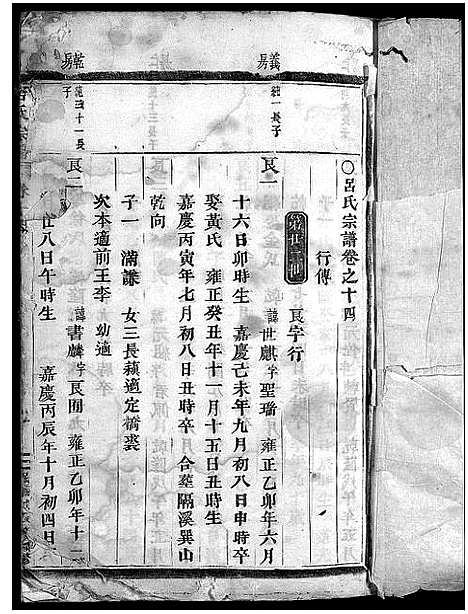 〇呂氏宗譜卷之十四
行傳
第廿三世 良字行
義易 純一長子
良一 諱世麒字聖瑞 雍正乙卯年六月
十六日卯時生 嘉慶己未年九月初八日申時卒
娶黃氏 雍正癸丑年十一月十五日丑時生
嘉慶丙寅年七月初八日丑時卒 合塟隔溪巽山
乾向
子一 滿謙 女三長蘋適定橋裘
次本適前王李 幼適
良二 諱書麟字良囿 雍正乙卯年十二
廿八日午時生 嘉慶丙辰年十月初四日